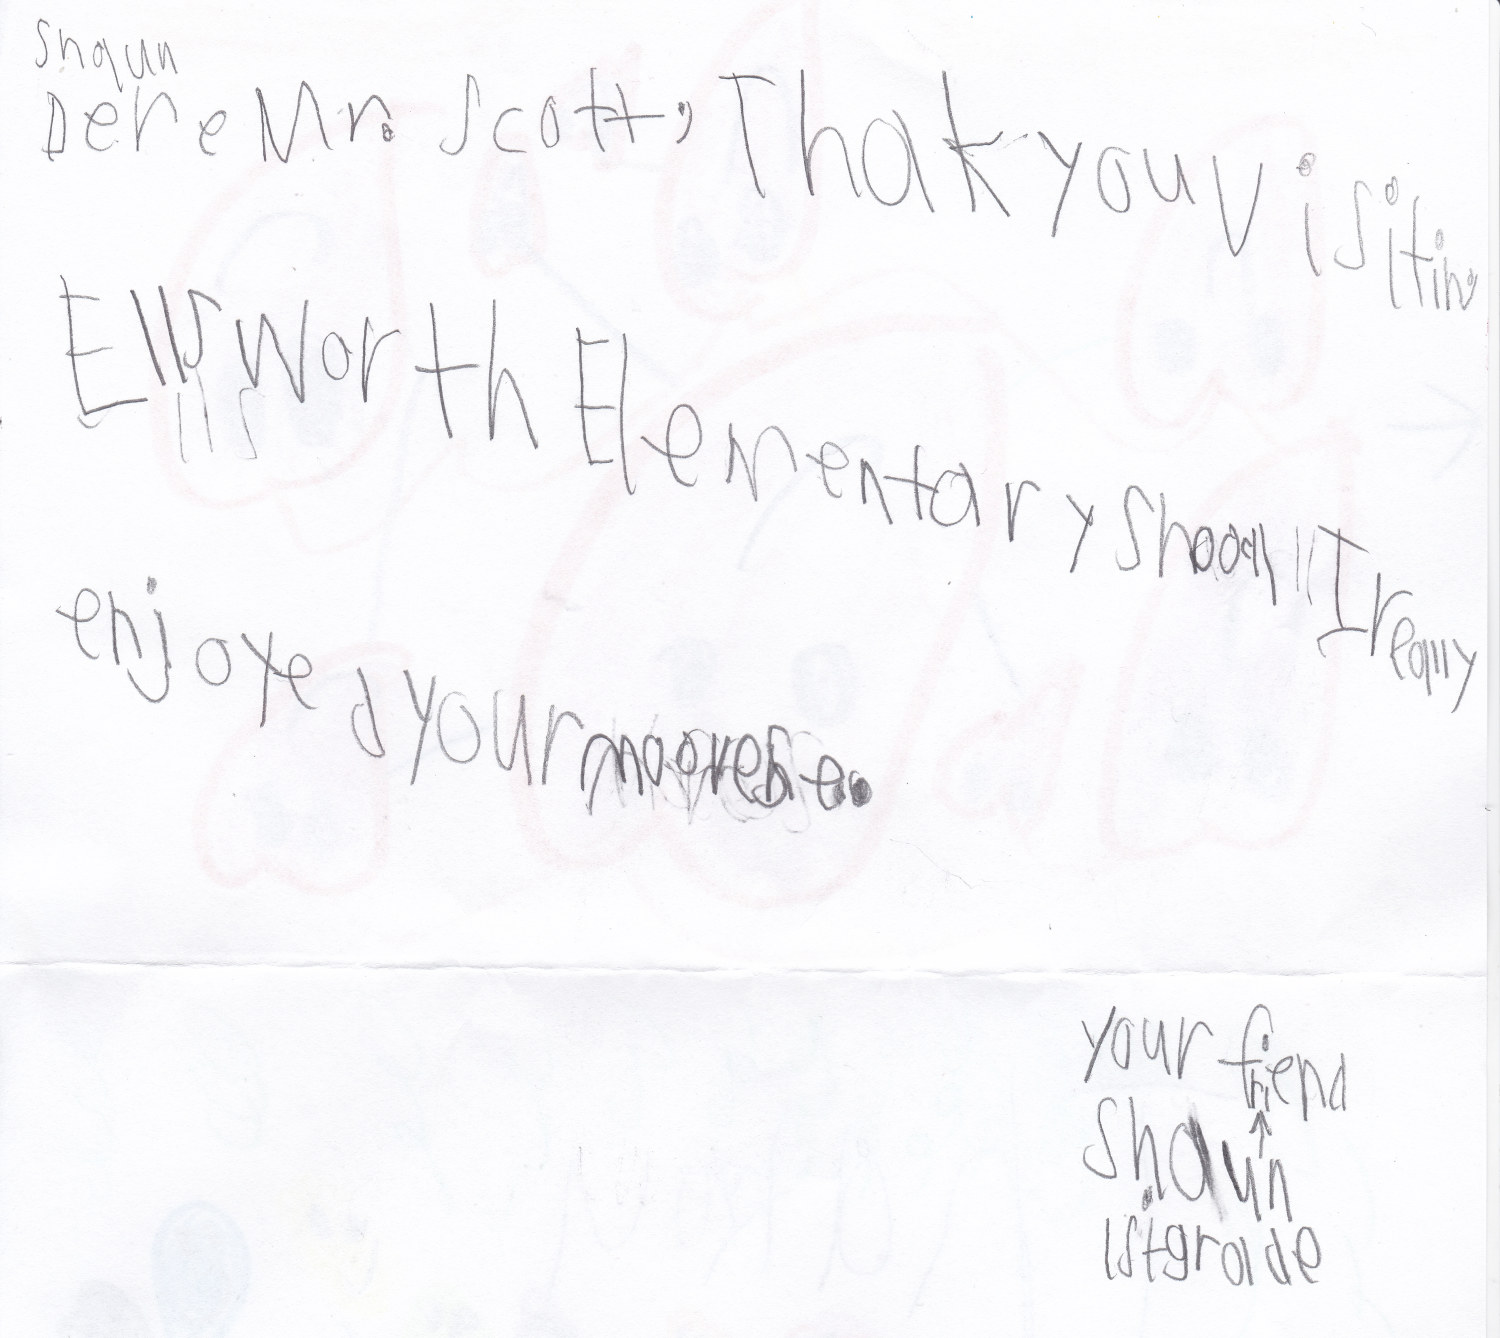 Shaun
Dere Mr. Scott, Thak you visiting
Ellsworth Elementary Shooall I reqlly
lls
enjoyed your
your friend
ri
Shaun
1st grade